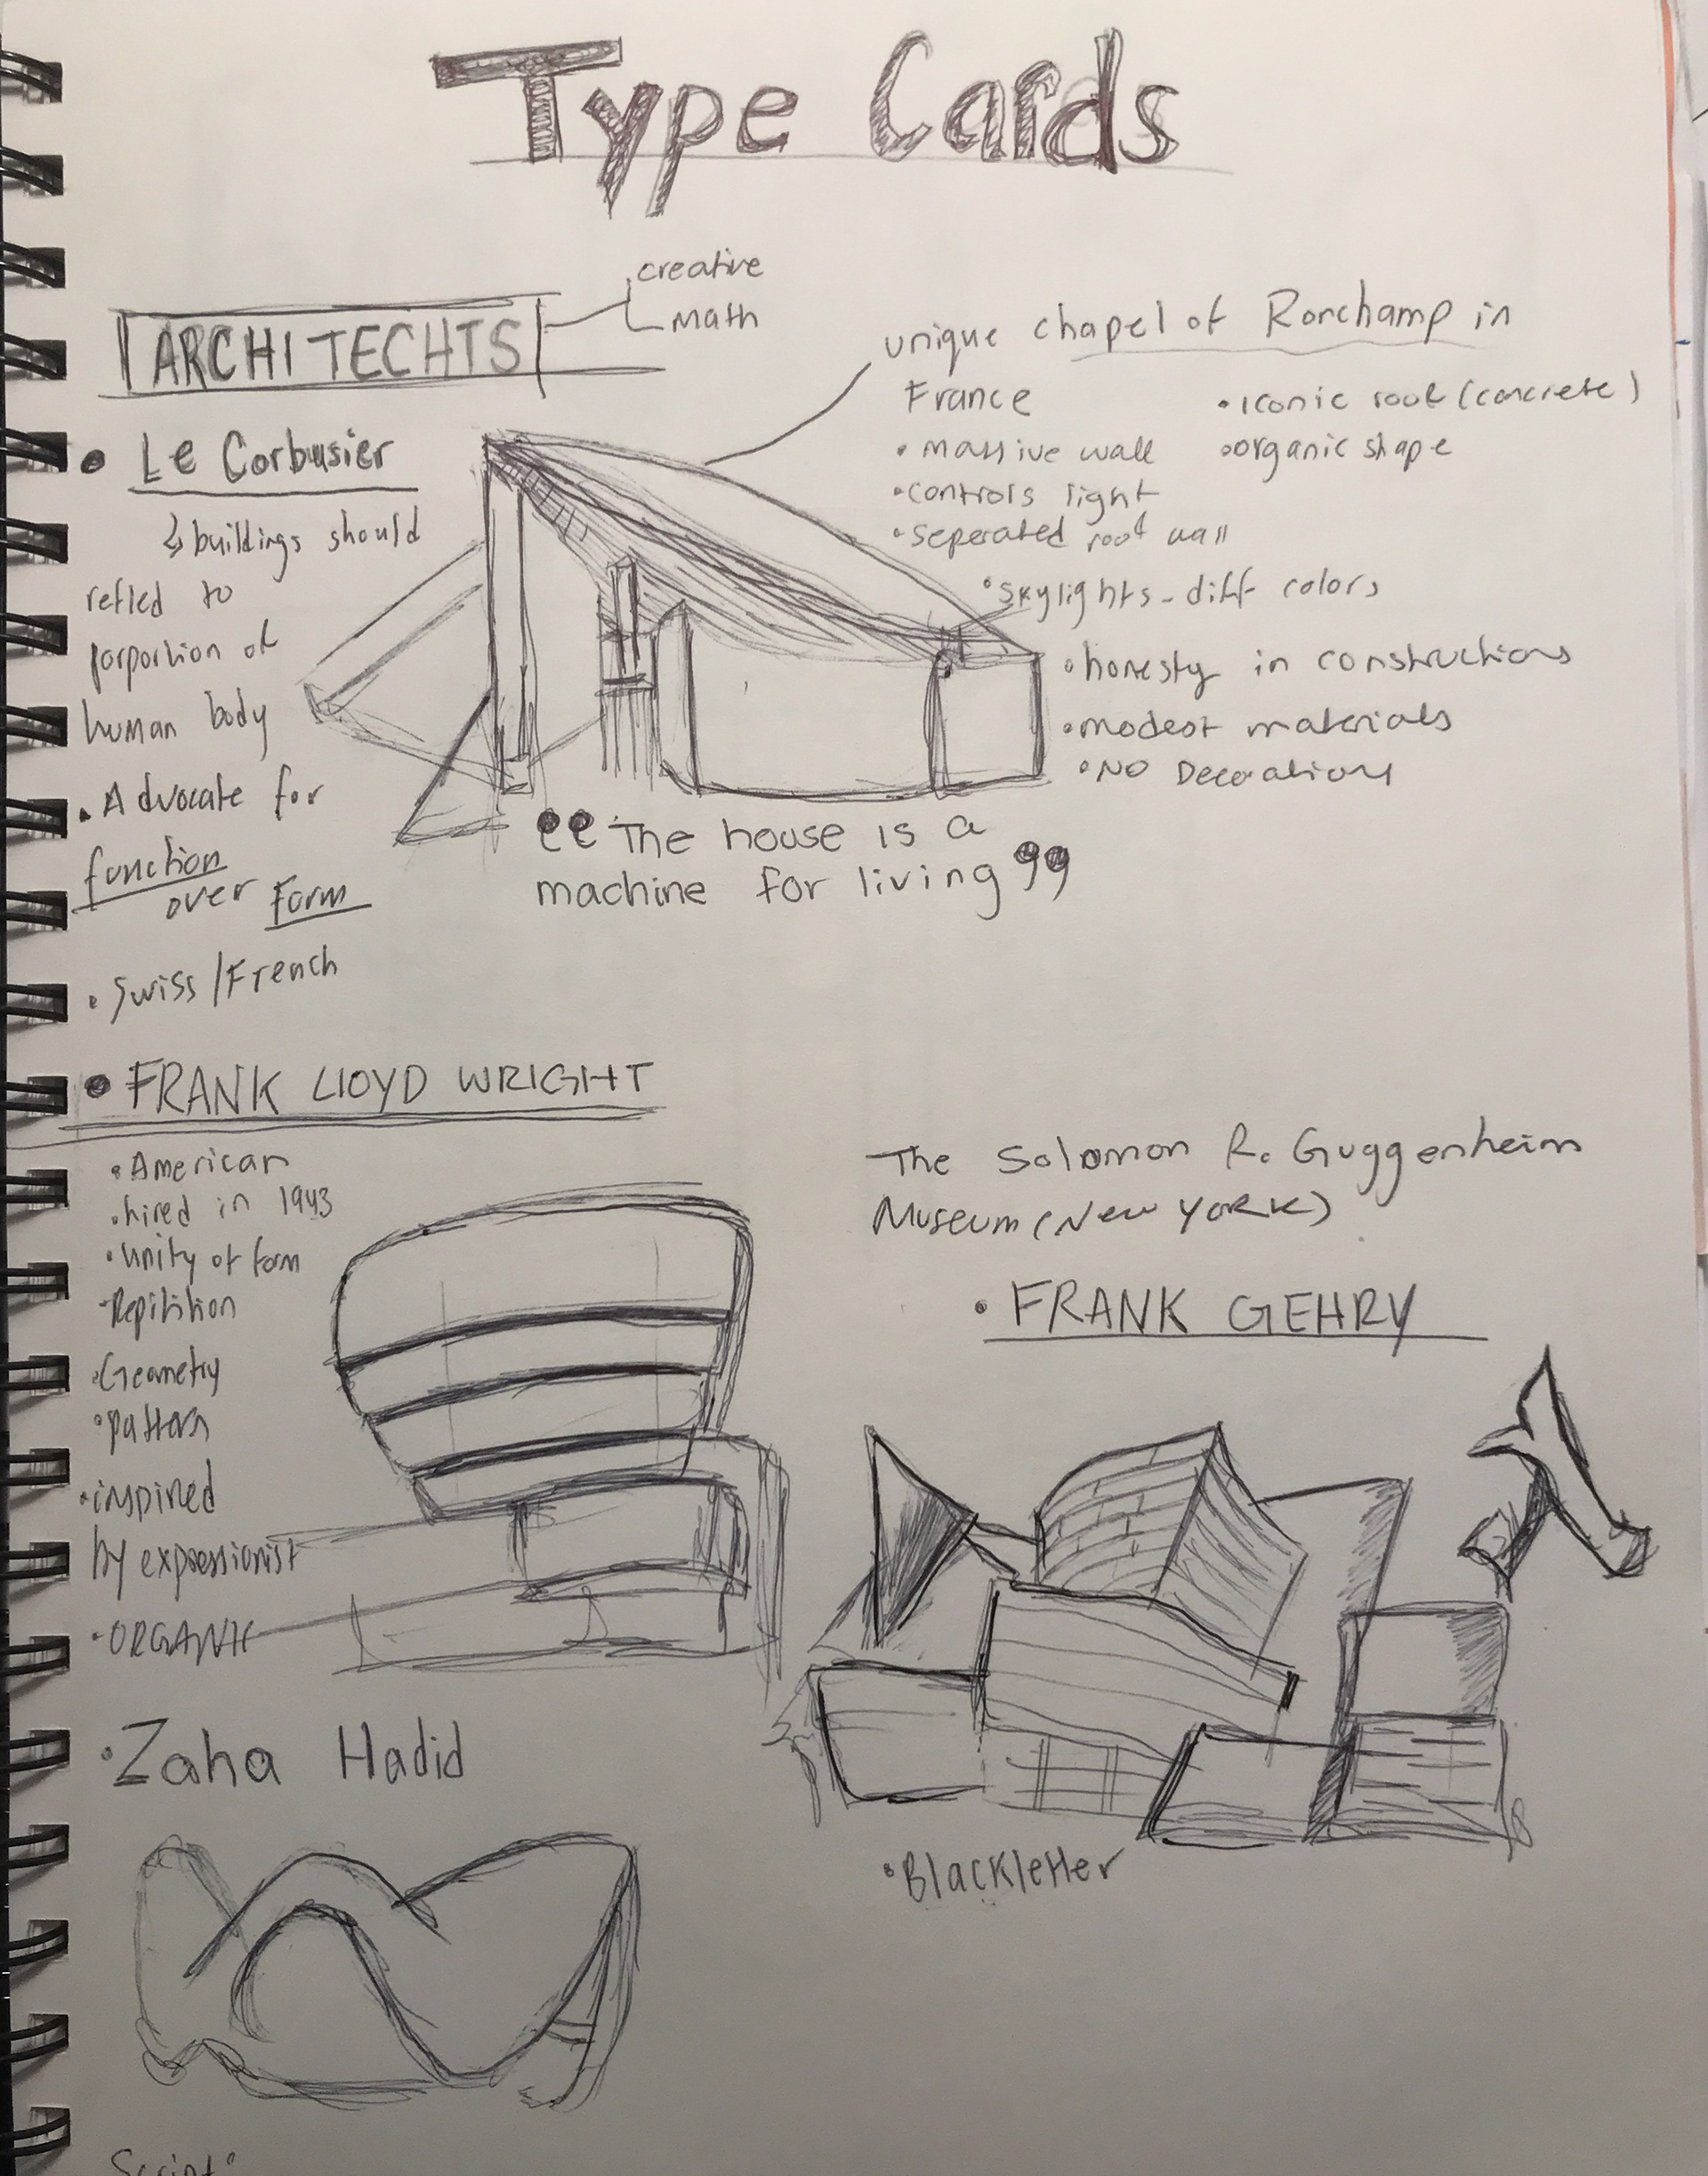 Type Cards
creative
math
ARCHITECHTS
unique chapel of Ronchamp in
France
• massive wall
• controls light
• seperated roof wall
• iconic roof (concrete)
• organic shape
• skylights - diff colors
• honesty in constructions
• modest materials
• NO Decorations
• Le Corbusier
buildings should
refled to
porportion of
human body
• Advocate for
function
over Form
• Swiss/French
The house is a
machine for living
• FRANK LLOYD WRIGHT
• American
• hired in 1943
• unity of form
Repitition
• Geometry
• pattern
• inspired
by expressionist
• ORGANIC
The Solomon R. Guggenheim
Museum (New YORK)
• FRANK GEHRY
• Blackletter
• Zaha Hadid
Script